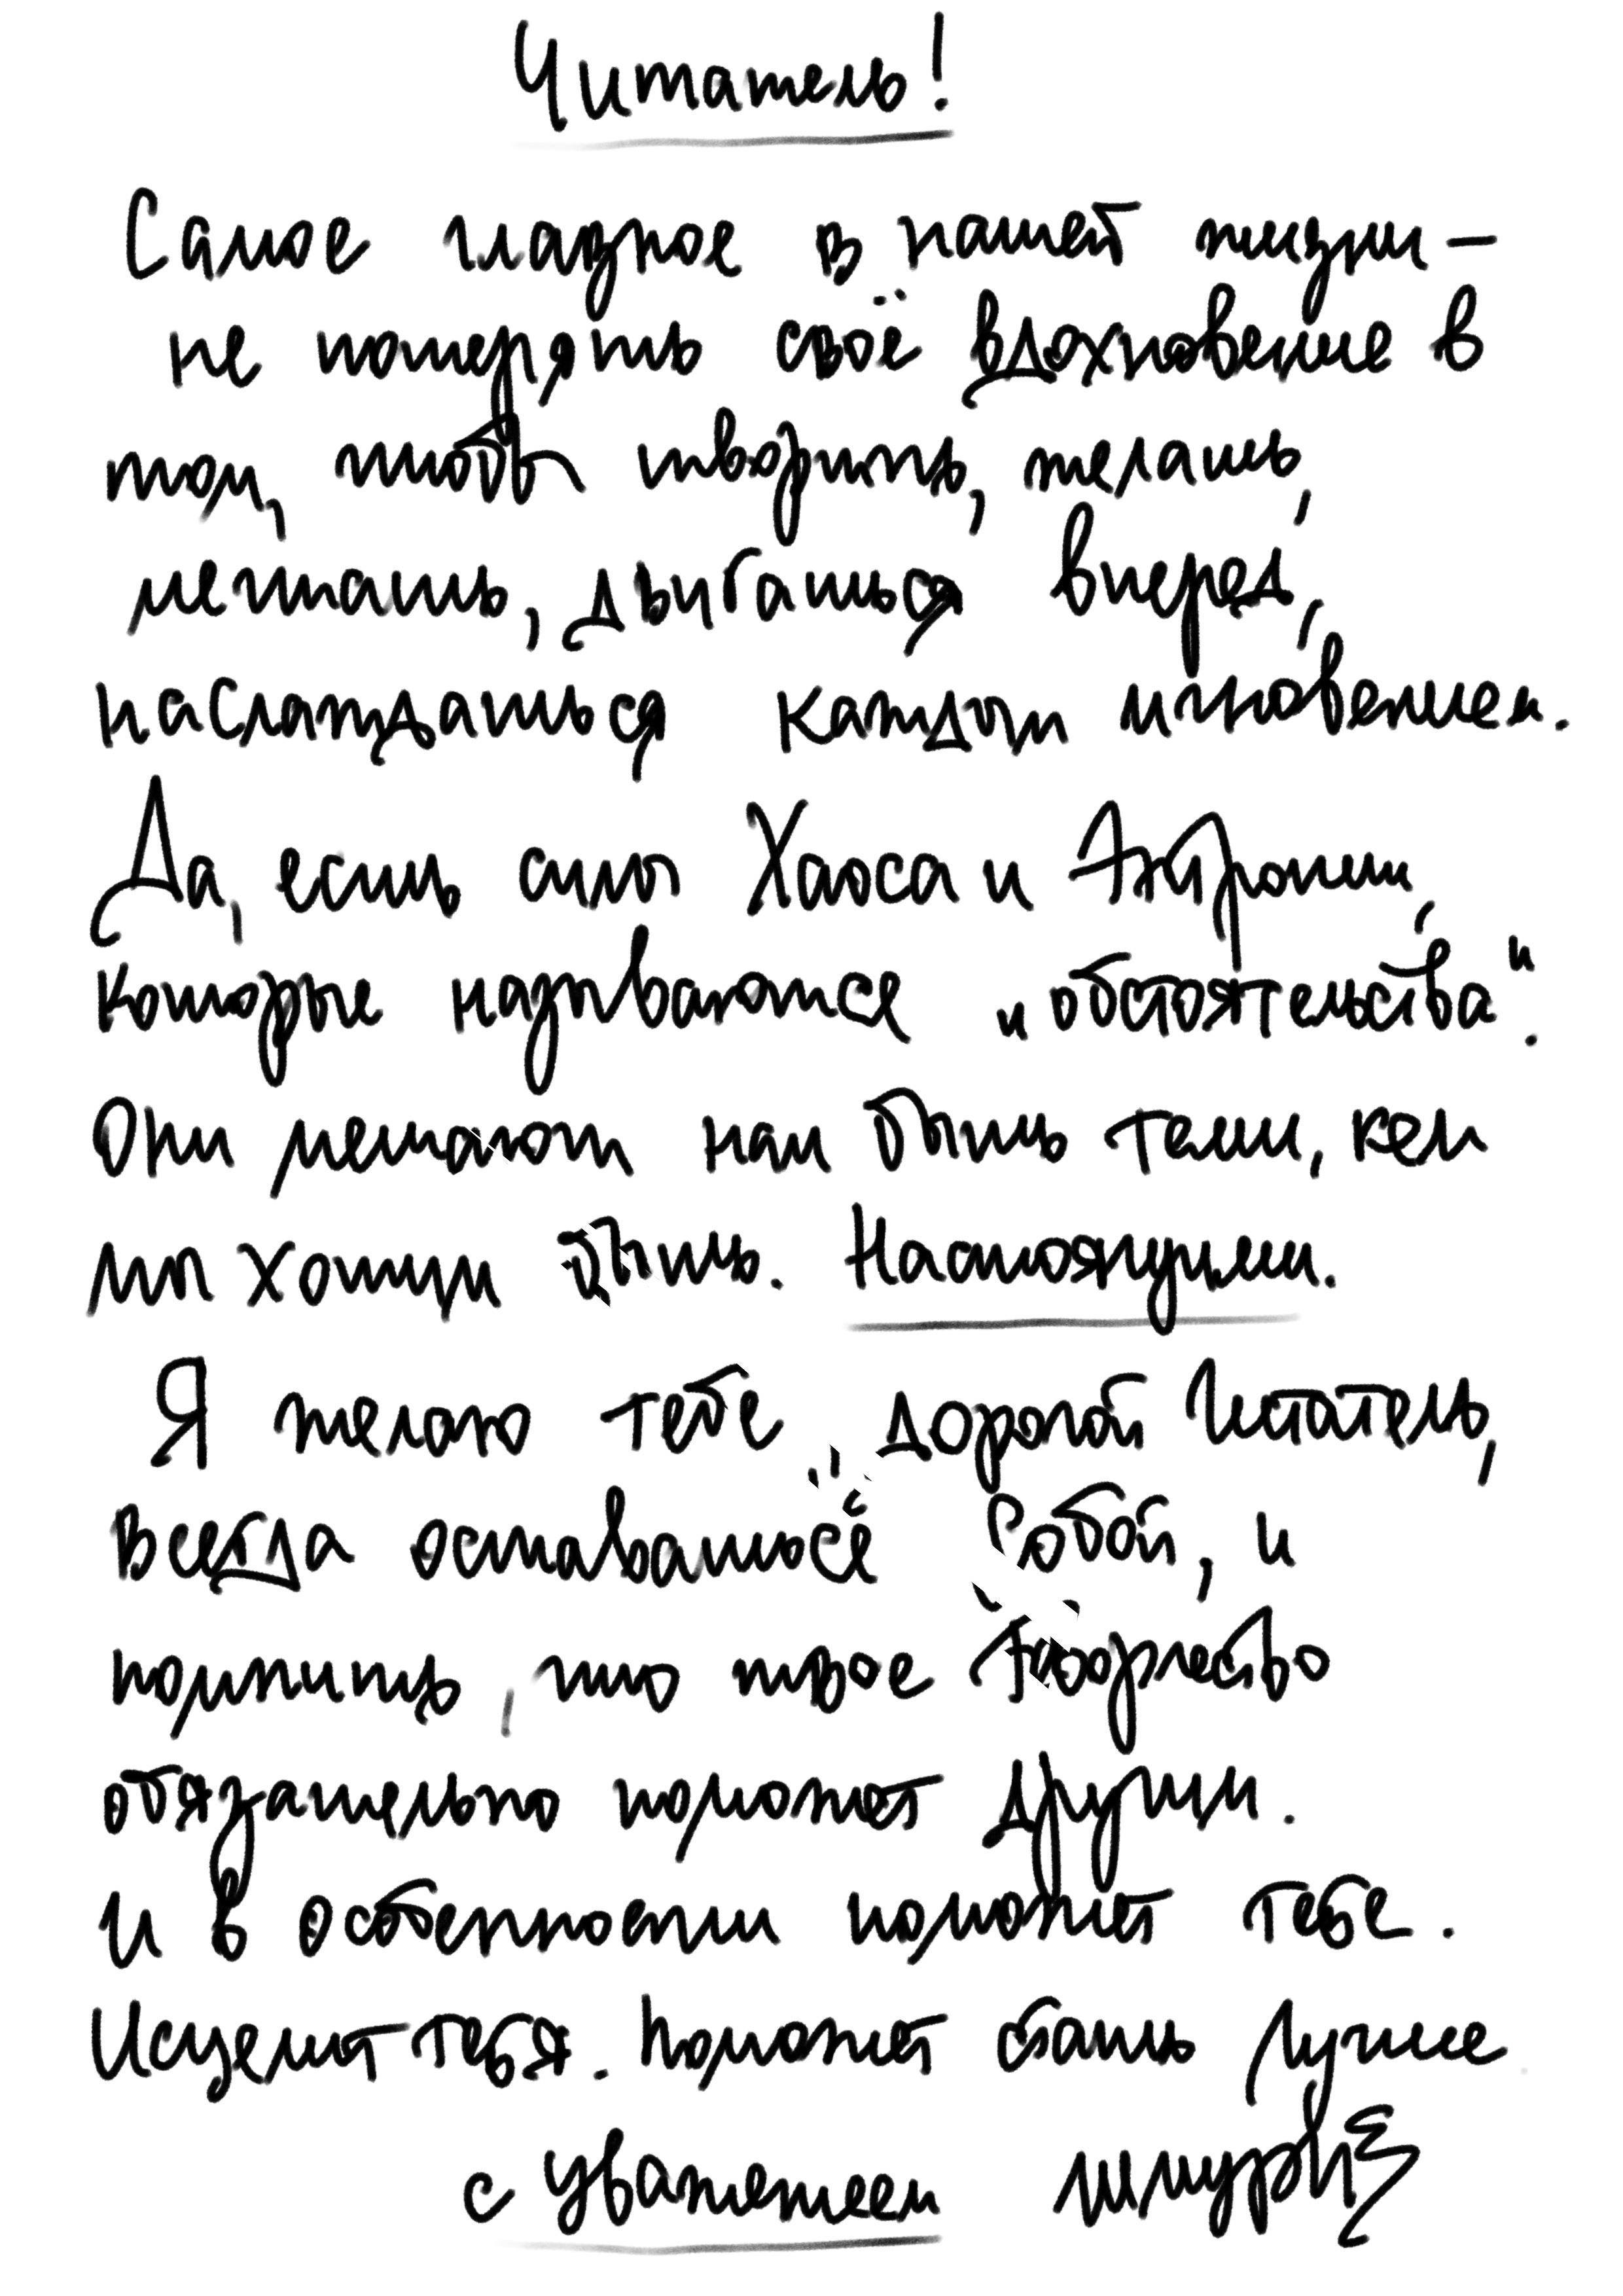 Читатель!
Самое главное в нашей жизни –
не потерять своё вдохновение в
том, чтобы творить, желать,
мечтать, двигаться вперед,
наслаждаться каждым мгновением.
Да, есть силы Хаоса и Энтропии,
которые называются „обстоятельства".
Они мешают нам быть теми, кем
мы хотим быть. Настоящими.
Я желаю тебе, дорогой Читатель,
всегда оставаться Собой, и
помнить, что твое Творчество
обязательно поможет другим.
И в особенности поможет тебе.
Исцелит тебя. Поможет стать лучше
с уважением